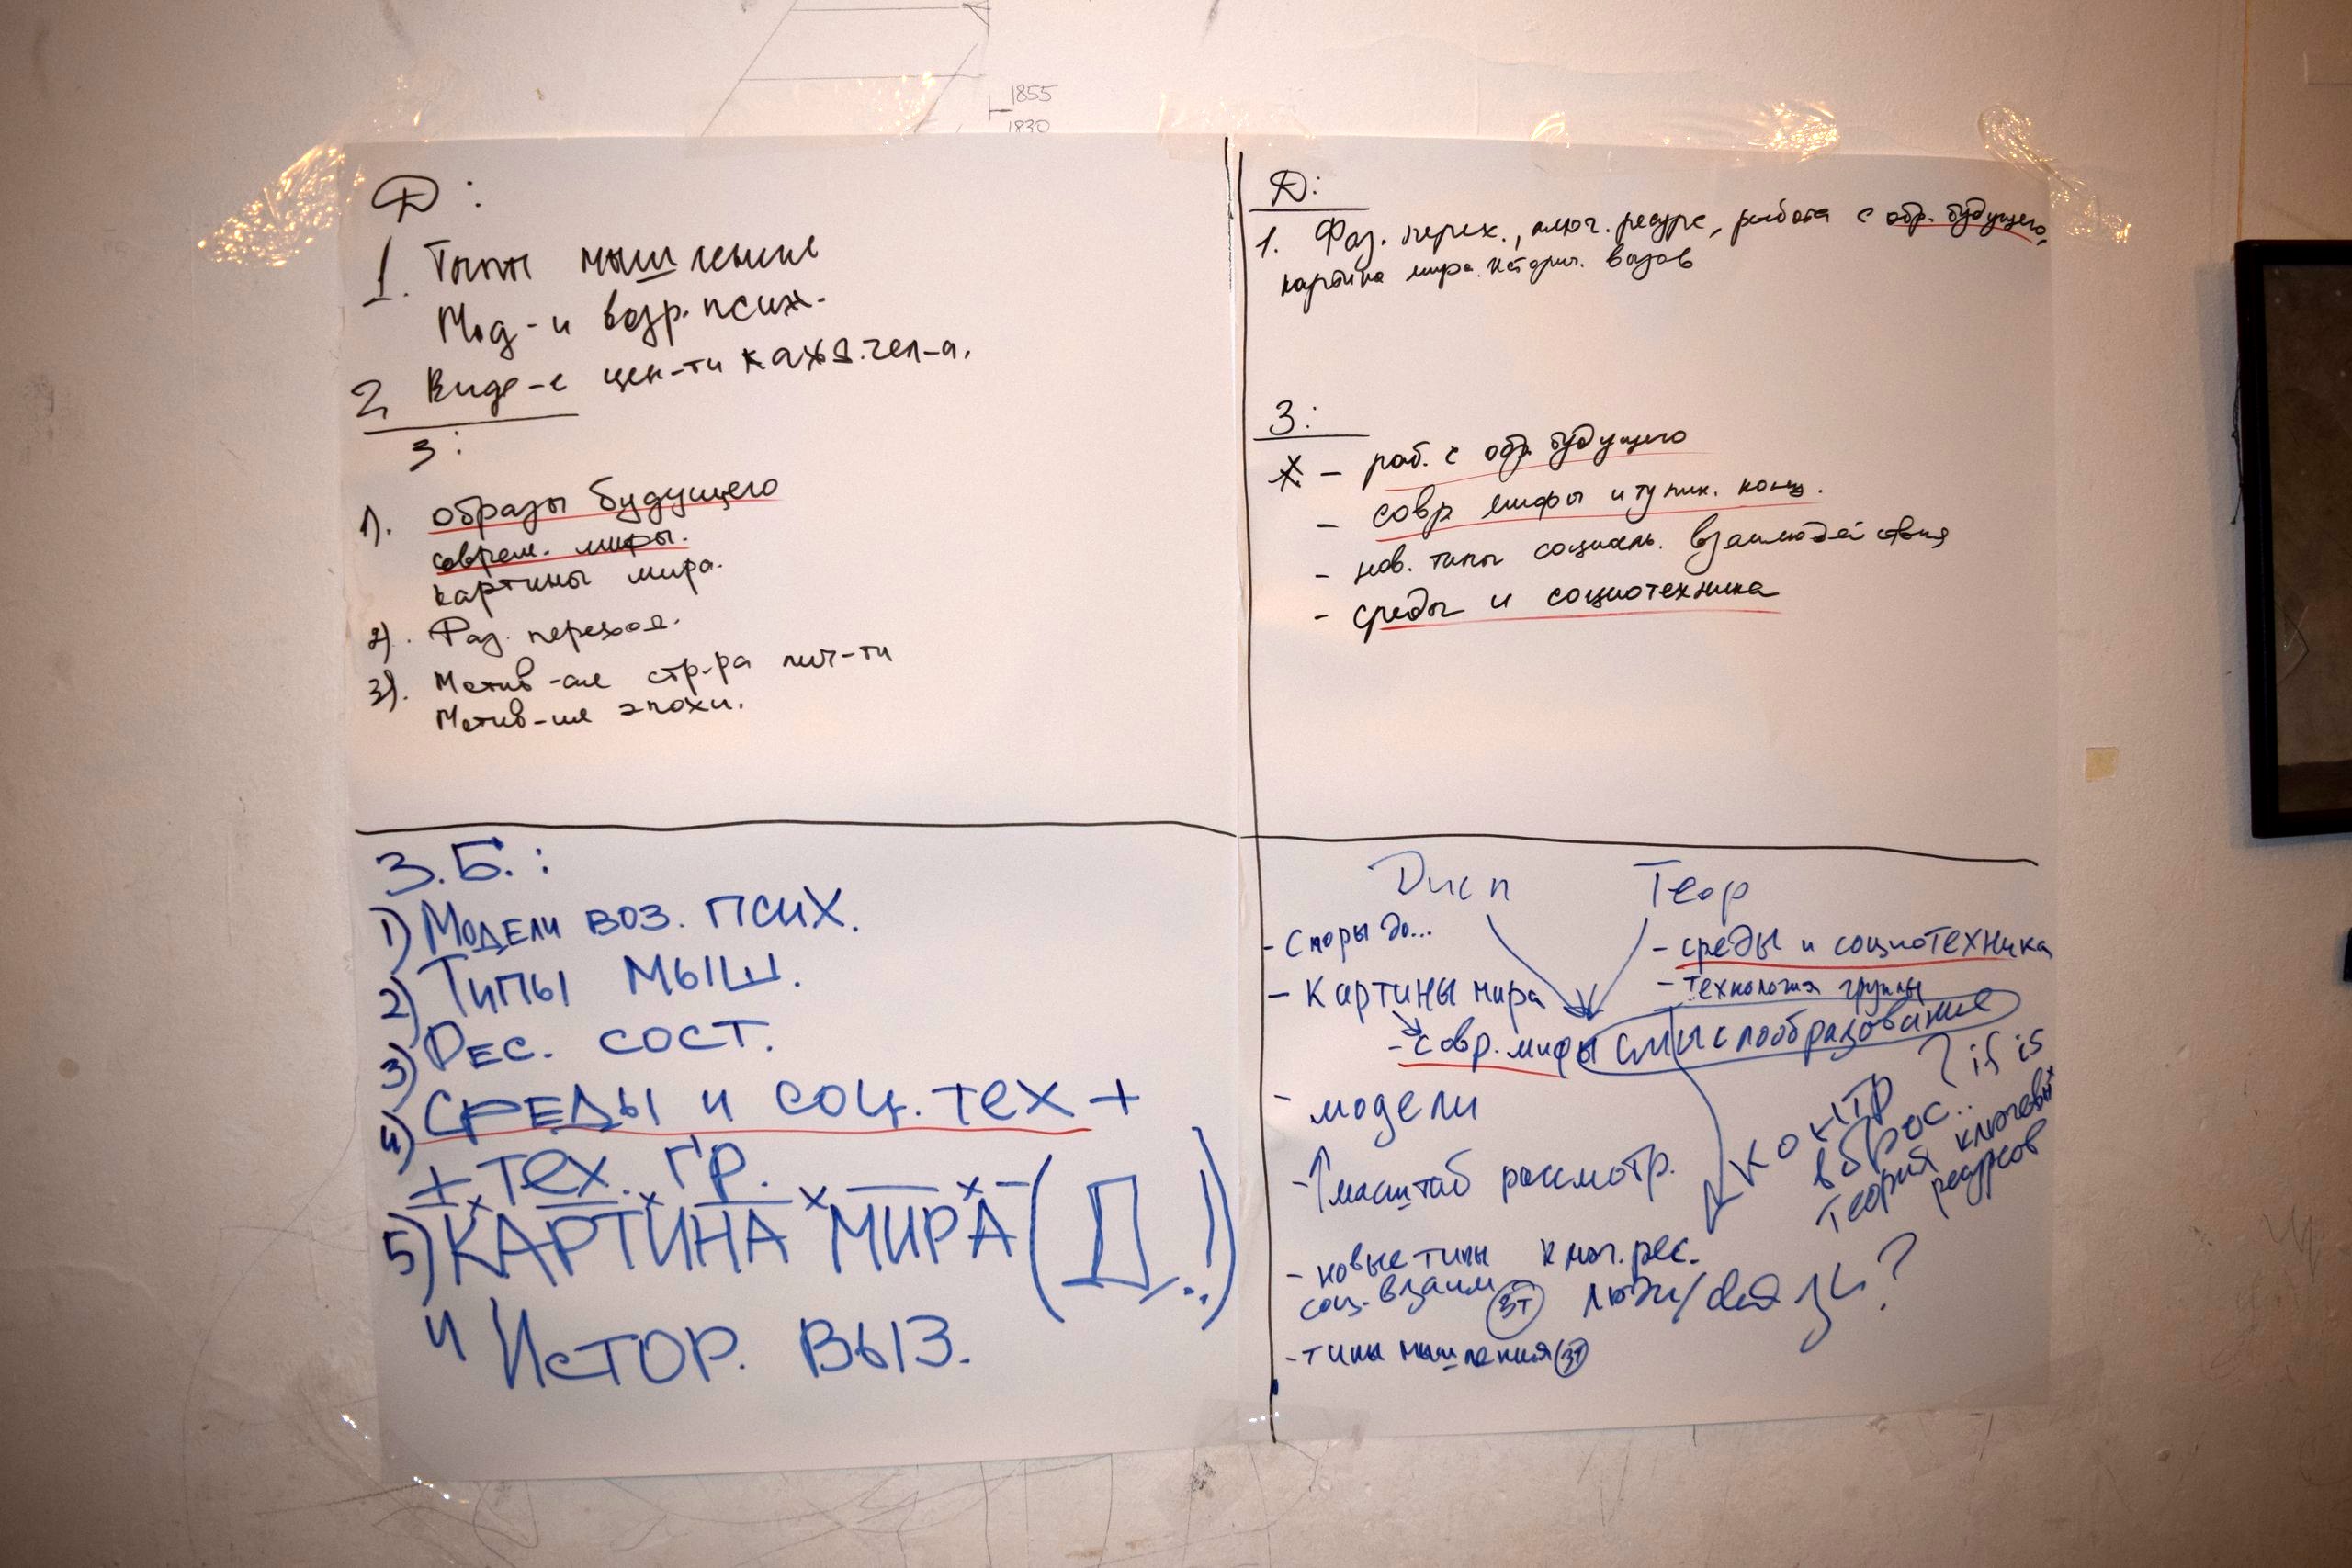 1855
1830
Д:
1. Типы мышления
Мод-и возр. псих.
2 Виде-е цен-ти кажд. чел-а.
З:
1). образы будущего
соврем. мифы.
картины мира.
2). Фаз. переход.
3). Мотив-ая стр-ра лич-ти
Мотив-ия эпохи.
Д:
1. Фаз. перех., ключ. ресурс, работа с обр. будущего,
картина мира. историч. вызов
З:
- раб. с обр. будущего
- совр мифы и тупик. конц.
- нов. типы социаль. взаимодействия
- среды и социотехника
З.Б.:
1) Модели воз. псих.
2) Типы мыш.
3) Рес. сост.
4) Среды и соц. тех +
+ тех. гр.
5) КАРТИНА МИРА (Д..!)
и Истор. выз.
Дисп
- Споры до...
- Картины мира
- совр. мифы
- модели
- ↑ масштаб рассмотр.
- новые типы
соц. взаим ЗТ
- типы мышления (ЗТ)
Теор
- среды и социотехника
- технология группы
смыслообразование
? if is
контр
вброс..
Теория ключевых
ресурсов
ключ. рес.
люди/связь?